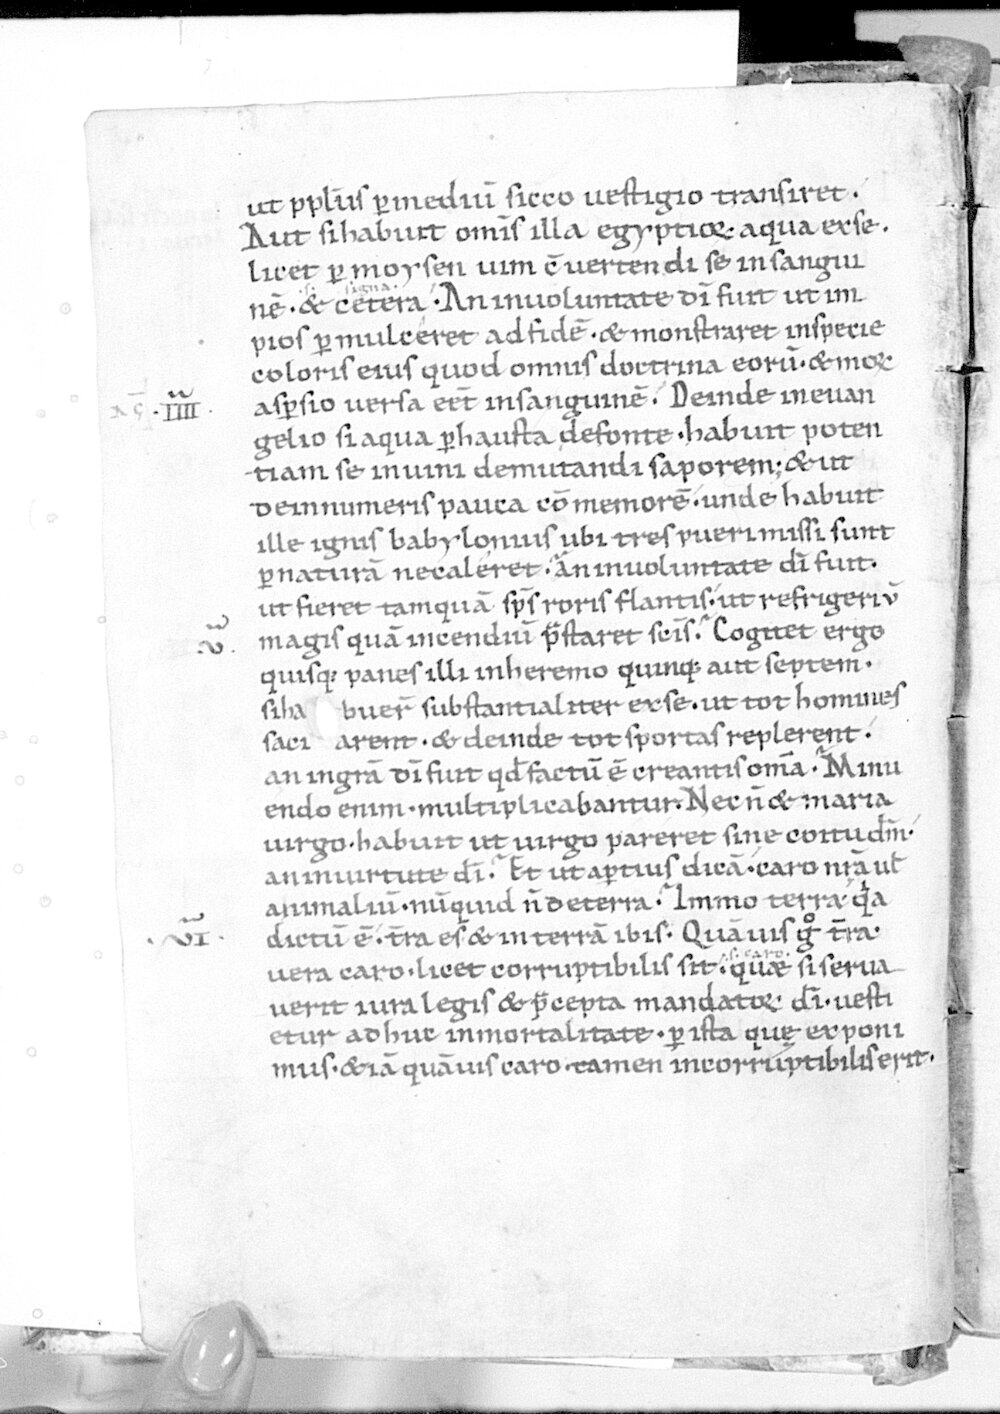 ut ppl̄us ꝑmediū sicco uestigio transiret.
Aut sihabuit om̄is illa egyptioꝝ aqua exse.
licet ꝑ moysen uim c̄uertendi se in sangui
nē. & cetera. An inuoluntate dī fuit ut im
si signa.
pios ꝑmulceret adfidē. & monstraret inspecie
coloris eius quod omnis doctrina eorū. & moꝝ
·IIII· aspsio uersa eēt insanguinē. Deinde ineuan
gelio si aqua ꝑhausta defonte. habuit poten
tiam se inuini demutandi saporem; & ut
deinnumeris pauca cōmemorē. unde habuit
ille ignis babylonius ubi tres pueri missi sunt
ꝑnaturā necaleret. An inuoluntate dī fuit.
ut fieret tamquā sp̄s roris flantis. ut refrigeriū
·V· magis quā incendiū p̄staret sc̄is. Cogitet ergo
quisq; panes illi inheremo quinq; aut septem.
siha buer̄ substantialiter exse. ut tot homines
saci arent. & deinde tot sportas replerent.
an ingrā dī fuit qd̄ factū ē creantis om̄a. Minu
endo enim. multiplicabantur. Nec n̄ & maria
uirgo. habuit ut uirgo pareret sine coitu dn̄i.
an inuirtute dī. Et ut aꝑtius dicā. caro nr̄a ul̄
animaliū. nūquid n̄ deterra. Immo terra. q̄a
·VI· dictū ē. t̄ra es & in terrā ibis. Quāuis gͦ t̄ra.
uera caro. licet corruptibilis sit. quae si serua
.s. caro.
uerit iura legis & p̄cepta mandatoꝝ dī. uesti
etur adhuc inmortalitate. ꝑ ista quę exponi
mus. & iā quāuis caro. tamen incorruptibilis erit.